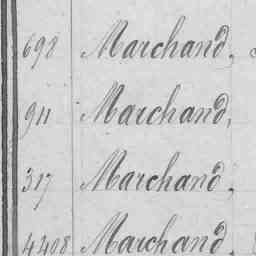 698 Marchand,
911 Marchand,
317 Marchand,
4408 Marchand,